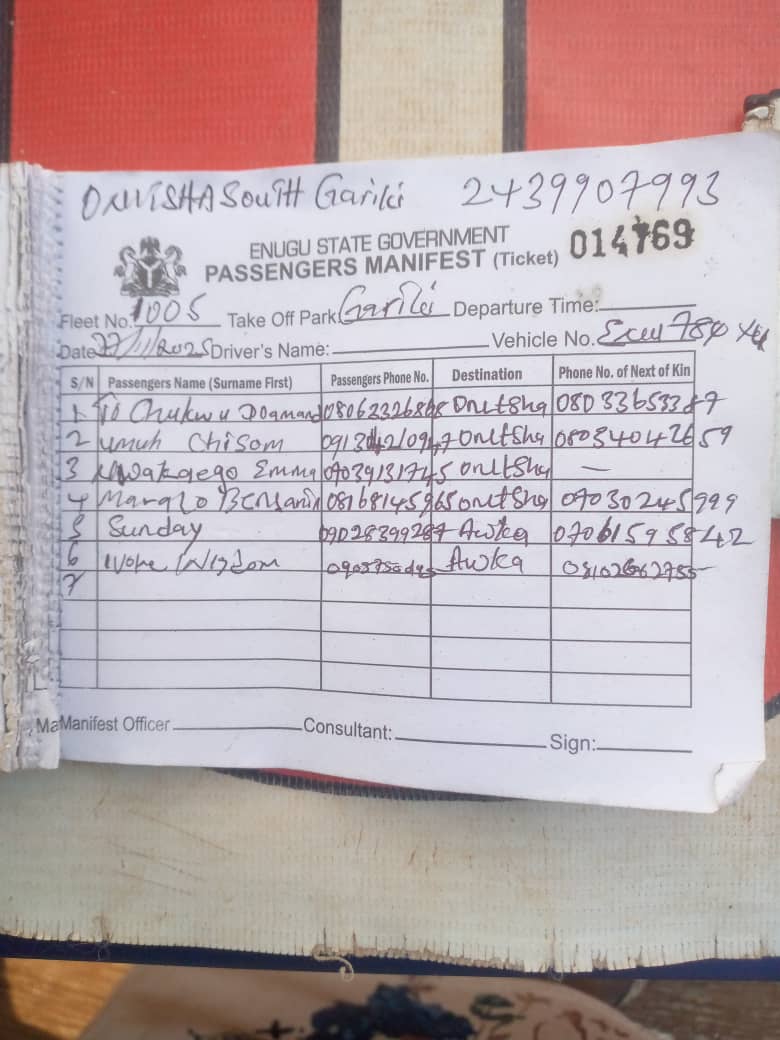 ONITSHA SOUTH Gariki 2439907993
ENUGU STATE GOVERNMENT
PASSENGERS MANIFEST (Ticket) 014769
Fleet No. 1005 Take Off Park Gariki Departure Time:
Date 27/11/2025 Driver's Name: Vehicle No.
S/N Passengers Name (Surname First) Passengers Phone No. Destination Phone No. of Next of Kin
1 Chukwu Onitsha
2 Umuh Chisom Onitsha 08034042659
3 Emma 07039131745 Onitsha —
4 08168145965 Onitsha 07030245999
5 Sunday 09028399287 Awka 07061595842
6 Awka
7
Manifest Officer Consultant: Sign: